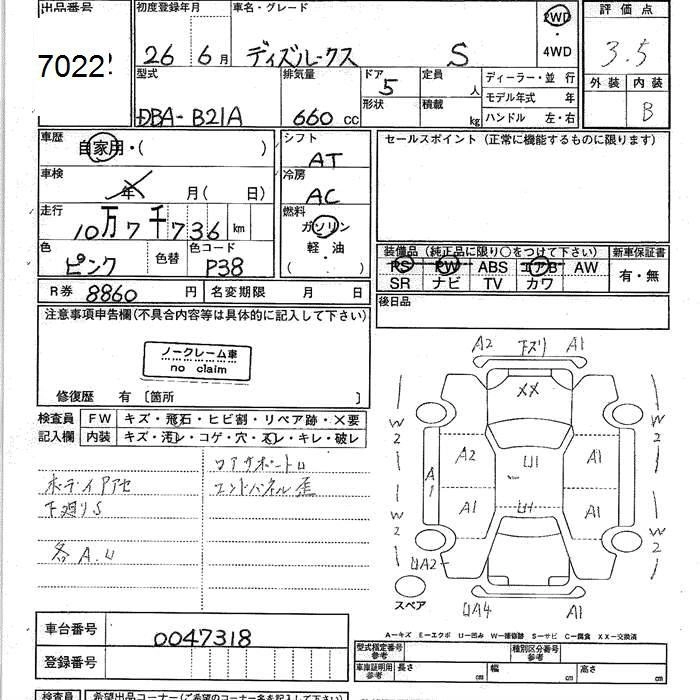 出品番号
7022
初度登録年月
26 6月
車名・グレード
ディズルークス S
2WD
・
4WD
評価点
3.5
外装 内装
B
型式
DBA-B21A
排気量
660 cc
ドア 5
形状
定員 人
積載 kg
ディーラー・並行
モデル年式 年
ハンドル 左・右
車歴
自家用・( )
車検
年 月( 日)
走行
10万7千736 km
色
ピンク
色替
色コード
P38
シフト
AT
冷房
AC
燃料
ガソリン
軽・油
( )
セールスポイント (正常に機能するものに限ります)
装備品 (純正品に限り○をつけて下さい)
PS PW ABS エアB AW
SR ナビ TV カワ
新車保証書
有・無
後日品
R券 8860 円
名変期限 月 日
注意事項申告欄(不具合内容等は具体的に記入して下さい)
ノークレーム車
no claim
修復歴 有 〔箇所 〕
検査員
記入欄
FW キズ・飛石・ヒビ割・リペア跡・X要
内装 キズ・汚レ・コゲ・穴・スレ・キレ・破レ
コアサポートU
エンドパネル歪
下廻りS
各A.U
A2 下ズリ A1
XX
W2
W2
A1
A2
U1
A1
A1
U1
A1
W2
W2
UA2
スペア
UA4 A1
A−キズ E−エクボ U−凹み W−補修跡 S−サビ C−腐食 XX−交換済
車台番号
0047318
登録番号
型式指定番号
参考
種別区分番号
参考
車庫証明用
参考
長さ cm
幅 cm
高さ cm
検査員
希望出品コーナー(ご希望のコーナー名を記入して下さい)